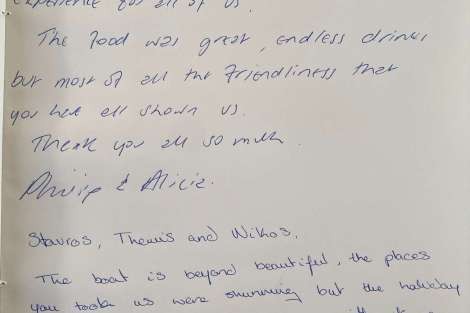 experience for all of us.
The food was great, endless drinks
but most of all the friendliness that
you have all shown us.
Thank you all so much.
Philip & Alicia.
Stavros, Themis and Nikos,
The boat is beyond beautiful, the places
you took us were stunning but the holiday